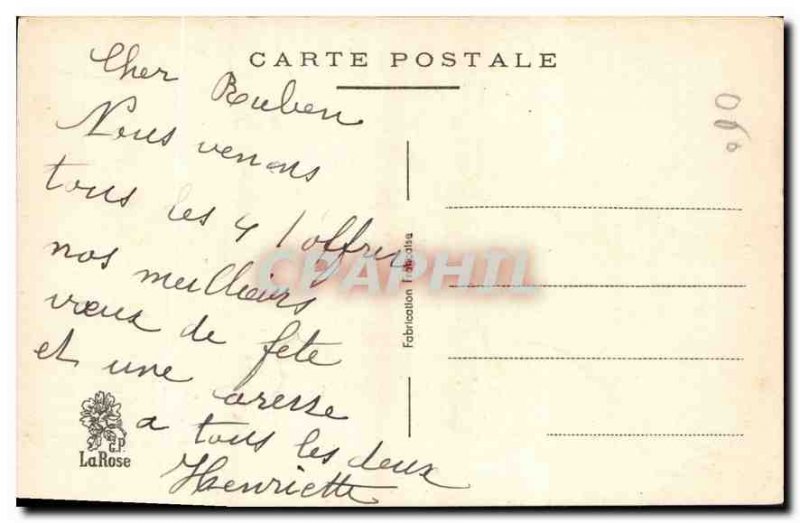 CARTE POSTALE
Cher Ruben
Nous venons
tous les 4 t'offrir
nos meilleurs
vœux de fête
et une
a tous les deux
Henriette
Fabrication Française
G.P.
LaRose
CPAPHIL
0,60